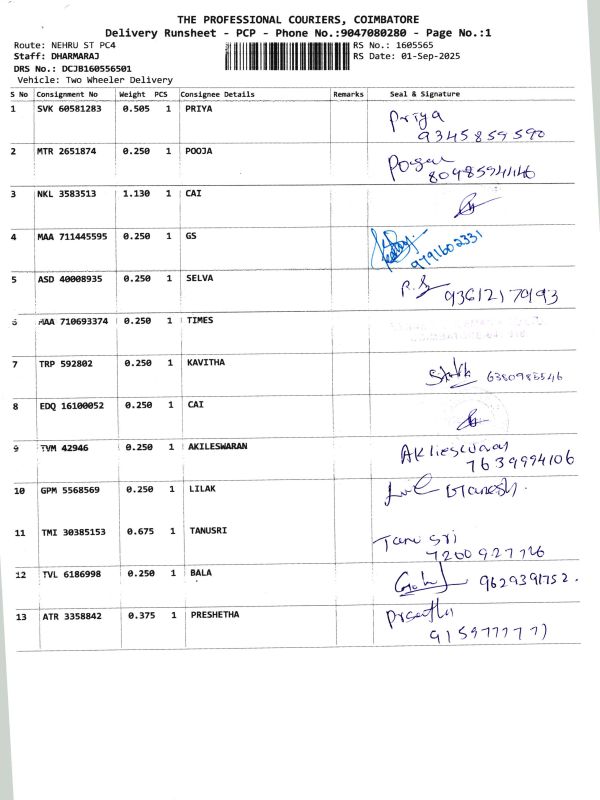 THE PROFESSIONAL COURIERS, COIMBATORE
Delivery Runsheet - PCP - Phone No.:9047080280 - Page No.:1
Route: NEHRU ST PC4 RS No.: 1605565
Staff: DHARMARAJ RS Date: 01-Sep-2025
DRS No.: DCJB160556501
Vehicle: Two Wheeler Delivery
S No Consignment No Weight PCS Consignee Details Remarks Seal & Signature
1 SVK 60581283 0.505 1 PRIYA Priya
9345859590
2 MTR 2651874 0.250 1 POOJA
3 NKL 3583513 1.130 1 CAI
4 MAA 711445595 0.250 1 GS
9791602331
5 ASD 40008935 0.250 1 SELVA
6 MAA 710693374 0.250 1 TIMES
7 TRP 592802 0.250 1 KAVITHA
6380985546
8 EDQ 16100052 0.250 1 CAI
9 TVM 42946 0.250 1 AKILESWARAN Aklieswaran
7639994106
10 GPM 5568569 0.250 1 LILAK
11 TMI 30385153 0.675 1 TANUSRI Tanu sri
12 TVL 6186998 0.250 1 BALA 9629391752.
13 ATR 3358842 0.375 1 PRESHETHA